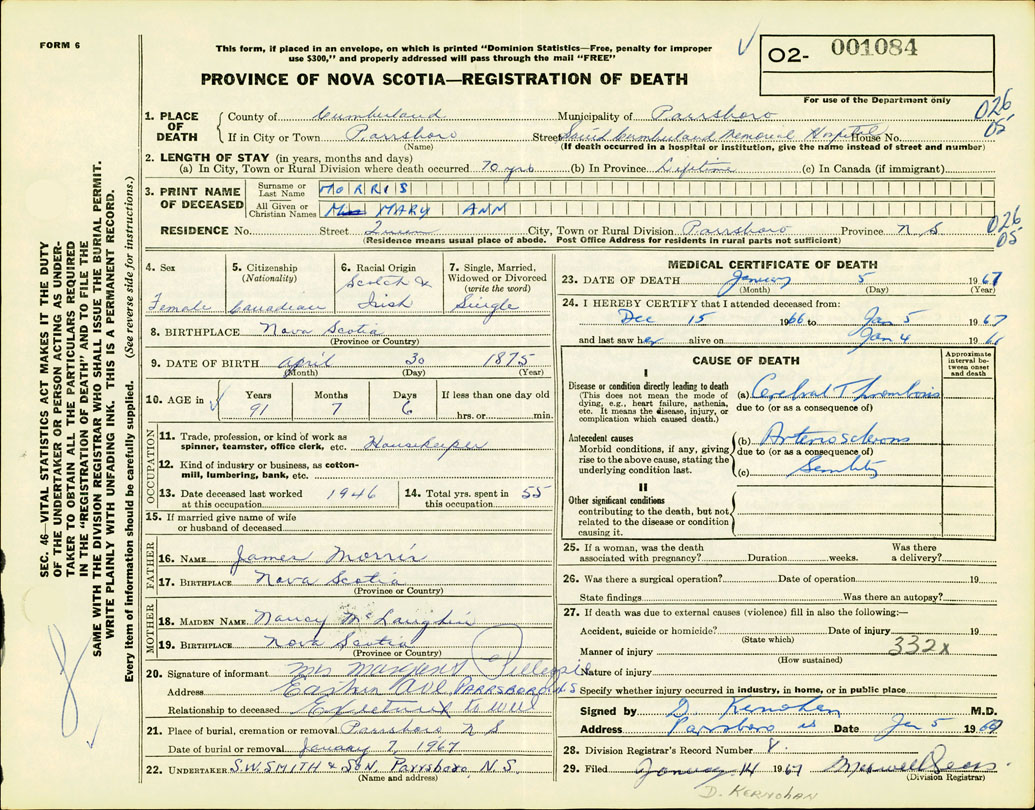 FORM 6
This form, if placed in an envelope, on which is printed "Dominion Statistics—Free, penalty for improper
use $300," and properly addressed will pass through the mail "FREE"
PROVINCE OF NOVA SCOTIA—REGISTRATION OF DEATH
O2- 001084
For use of the Department only
026
05
1. PLACE OF DEATH
County of Cumberland Municipality of Parrsboro
If in City or Town Parrsboro Street South Cumberland Memorial Hospital House No.
(Name) (If death occurred in a hospital or institution, give the name instead of street and number)
2. LENGTH OF STAY (in years, months and days)
(a) In City, Town or Rural Division where death occurred 70 yrs (b) In Province Lifetime (c) In Canada (if immigrant)
3. PRINT NAME OF DECEASED
Surname or Last Name MORRIS
All Given or Christian Names MARY ANN
026
05
RESIDENCE No. Street Queen City, Town or Rural Division Parrsboro Province N S
(Residence means usual place of abode. Post Office Address for residents in rural parts not sufficient)
SEC. 46—VITAL STATISTICS ACT MAKES IT THE DUTY
OF THE UNDERTAKER OR PERSON ACTING AS UNDER-
TAKER TO OBTAIN ALL THE PARTICULARS REQUIRED
IN THE "REGISTRATION OF DEATH" AND TO FILE THE
SAME WITH THE DIVISION REGISTRAR WHO SHALL ISSUE THE BURIAL PERMIT.
WRITE PLAINLY WITH UNFADING INK. THIS IS A PERMANENT RECORD.
Every item of information should be carefully supplied. (See reverse side for instructions.)
4. Sex Female
5. Citizenship (Nationality) Canadian
6. Racial Origin Scotch & Irish
7. Single, Married, Widowed or Divorced (write the word) Single
8. BIRTHPLACE Nova Scotia
(Province or Country)
9. DATE OF BIRTH April 30 1875
(Month) (Day) (Year)
10. AGE in Years 91 Months 7 Days 6 If less than one day old
hrs. or min.
OCCUPATION
11. Trade, profession, or kind of work as
spinner, teamster, office clerk, etc. Housekeeper
12. Kind of industry or business, as cotton-
mill, lumbering, bank, etc.
13. Date deceased last worked at this occupation 1946
14. Total yrs. spent in this occupation 55
15. If married give name of wife
or husband of deceased
FATHER
16. NAME James Morris
17. BIRTHPLACE Nova Scotia
(Province or Country)
MOTHER
18. MAIDEN NAME Nancy McLaughlin
19. BIRTHPLACE Nova Scotia
(Province or Country)
20. Signature of informant Mrs Margaret Gillespie
Address Eastern Ave Parrsboro NS
Relationship to deceased to will
21. Place of burial, cremation or removal Parrsboro N S
Date of burial or removal January 7, 1967
22. UNDERTAKER S.W. SMITH & SON, Parrsboro, N.S.
(Name and address)
MEDICAL CERTIFICATE OF DEATH
23. DATE OF DEATH January 5 1967
(Month) (Day) (Year)
24. I HEREBY CERTIFY that I attended deceased from:
Dec 15 1966 to Jan 5 1967
and last saw her alive on Jan 4 19
CAUSE OF DEATH
Approximate interval between onset and death
I
Disease or condition directly leading to death
(This does not mean the mode of
dying, e.g., heart failure, asthenia,
etc. It means the disease, injury, or
complication which caused death.)
(a) Cerebral Thrombosis
due to (or as a consequence of)
Antecedent causes
Morbid conditions, if any, giving
rise to the above cause, stating the
underlying condition last.
(b) Arteriosclerosis
due to (or as a consequence of)
(c) Senility
II
Other significant conditions
contributing to the death, but not
related to the disease or condition
causing it.
25. If a woman, was the death associated with pregnancy? Duration weeks. Was there a delivery?
26. Was there a surgical operation? Date of operation 19
State findings Was there an autopsy?
27. If death was due to external causes (violence) fill in also the following:—
Accident, suicide or homicide? Date of injury 19
(State which)
332x
Manner of injury
(How sustained)
Nature of injury
Specify whether injury occurred in industry, in home, or in public place
Signed by D Kernohan M.D.
Address Parrsboro Date Jan 5 19
28. Division Registrar's Record Number 8.
29. Filed January 14 1967
(Division Registrar)
D. KERNOHAN